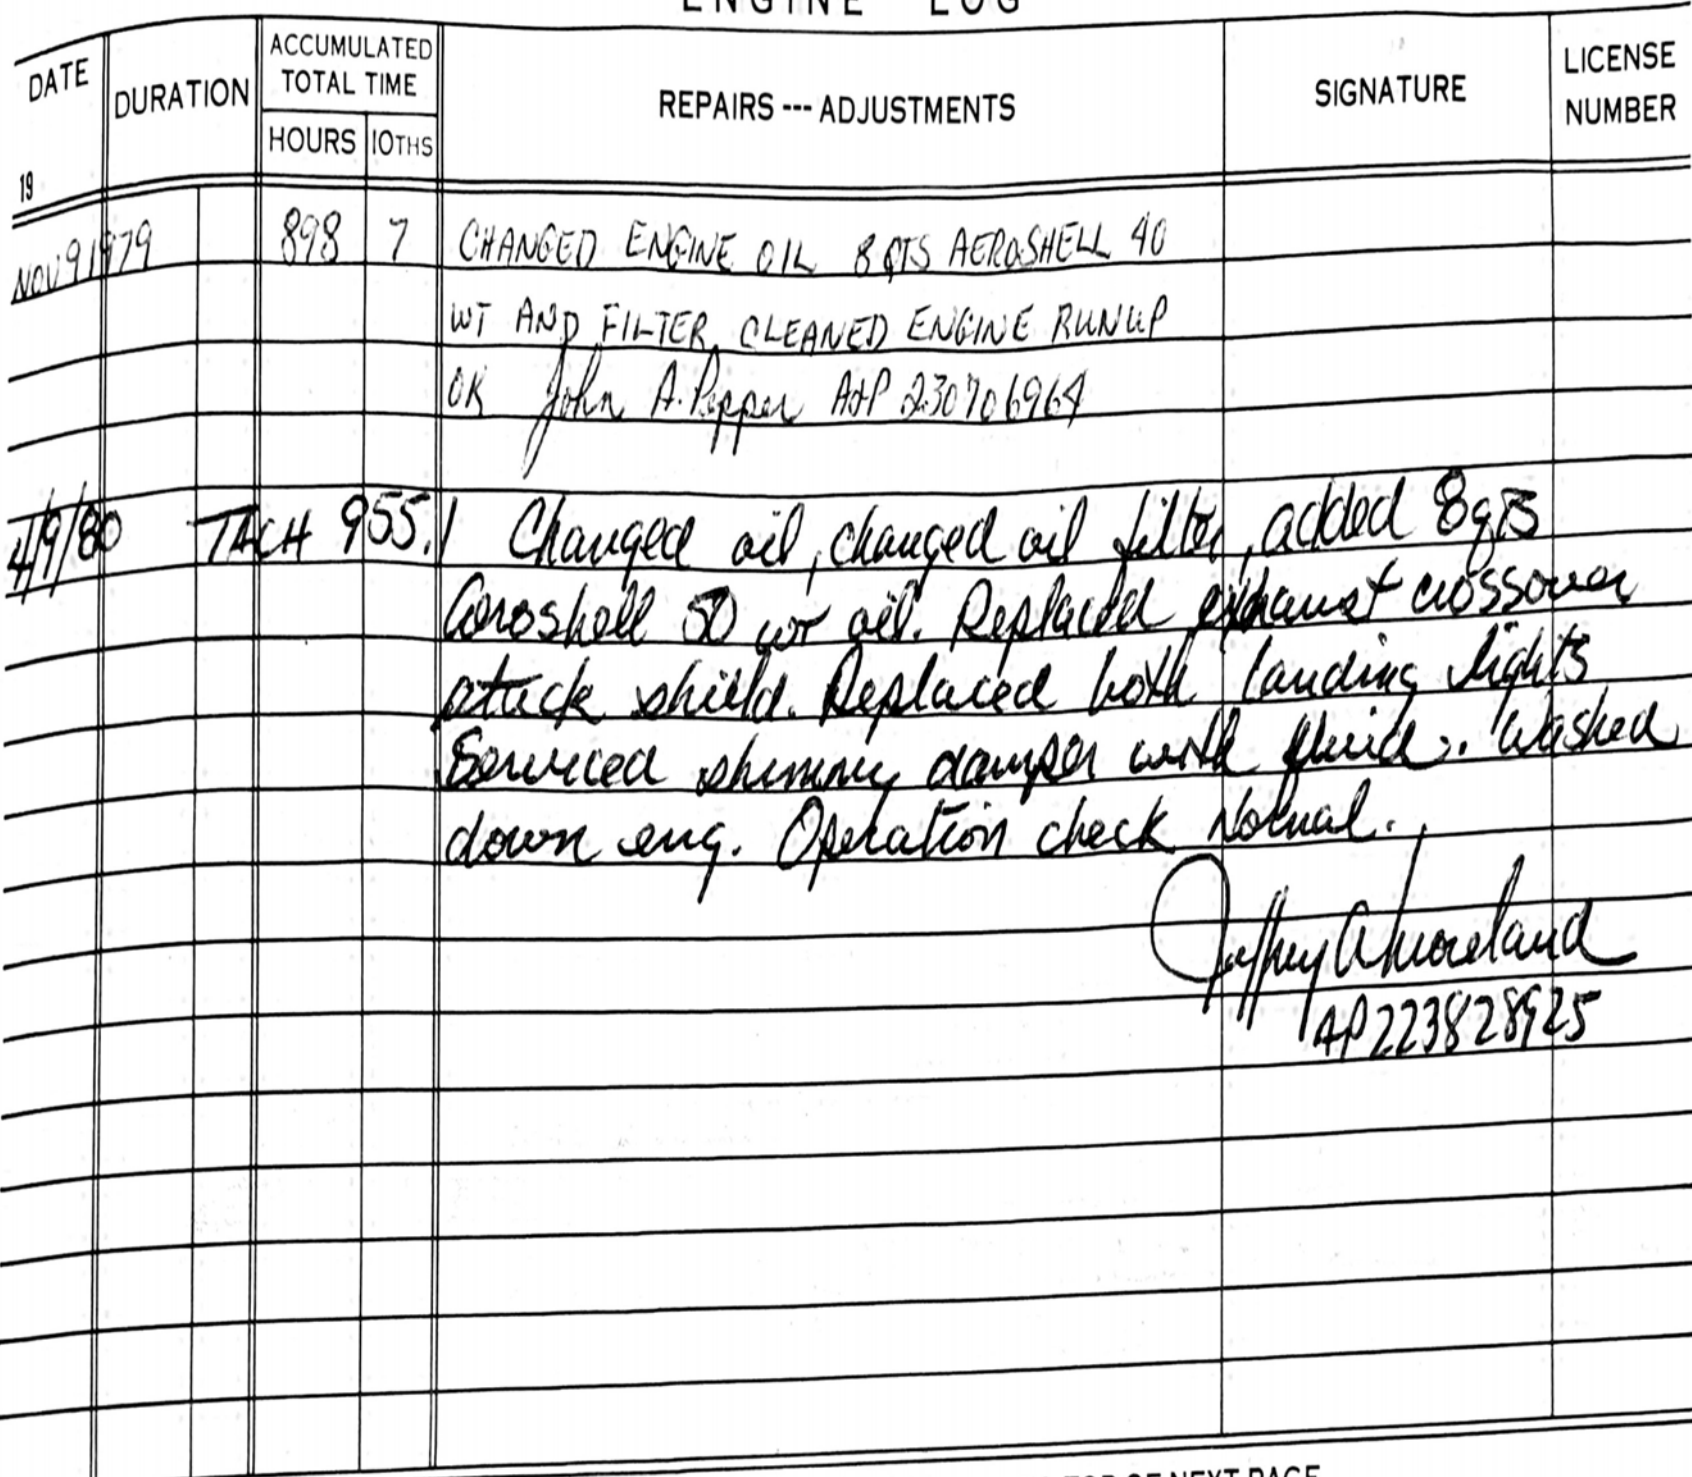 ENGINE LOG
DATE
19
DURATION
ACCUMULATED
TOTAL TIME
HOURS
10THS
REPAIRS --- ADJUSTMENTS
SIGNATURE
LICENSE
NUMBER
NOV 9 1979 898 7 CHANGED ENGINE OIL 8 QTS AEROSHELL 40
WT AND FILTER CLEANED ENGINE RUNUP
OK John A. Pepper A&P 230706964
4/9/80 TACH 955.1 Changed oil, changed oil filter, added 8 qts
Aeroshell 50 wt oil. Replaced exhaust crossover
shield. Replaced both landing lights
Serviced shimmy damper with fluid. Washed
down eng. Operation check Normal.
Jeffrey A Moreland
AP 223828925
NEXT PAGE